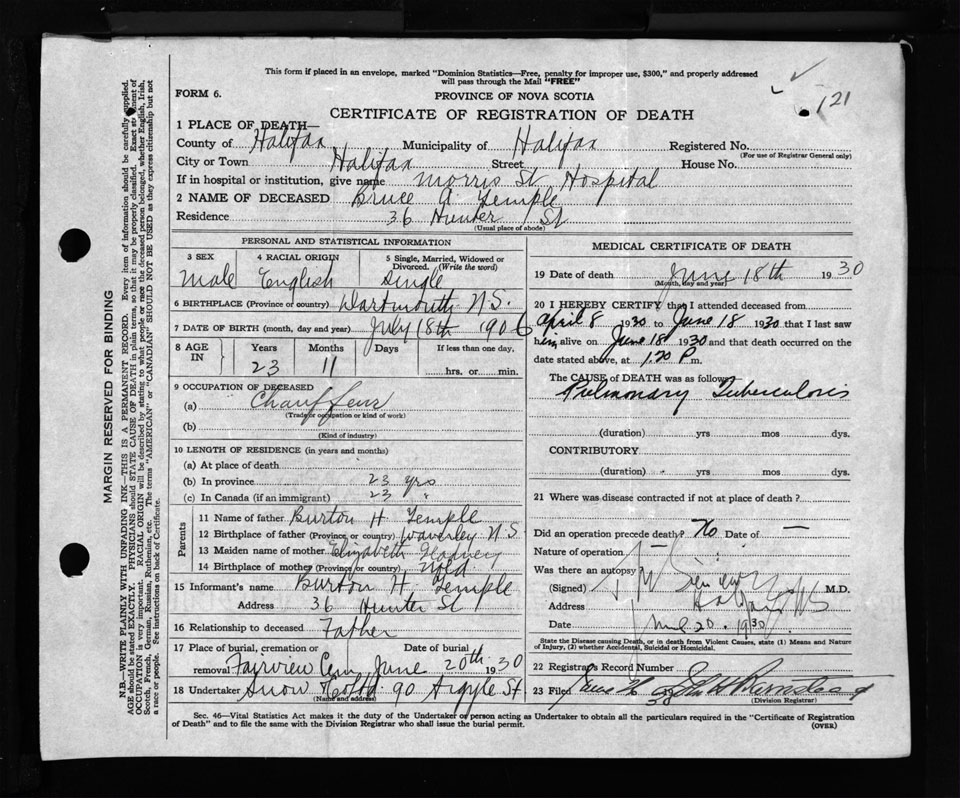 This form if placed in an envelope, marked "Dominion Statistics—Free, penalty for improper use, $300," and properly addressed
will pass through the Mail "FREE"
FORM 6.
PROVINCE OF NOVA SCOTIA
121
CERTIFICATE OF REGISTRATION OF DEATH
1 PLACE OF DEATH—
County of Halifax Municipality of Halifax Registered No.
(For use of Registrar General only)
City or Town Halifax Street House No.
If in hospital or institution, give name Morris St Hospital
2 NAME OF DECEASED Bruce A. Temple
Residence 36 Hunter St
(Usual place of abode)
PERSONAL AND STATISTICAL INFORMATION
3 SEX 4 RACIAL ORIGIN 5 Single, Married, Widowed or
Divorced. (Write the word)
Male English Single
6 BIRTHPLACE (Province or country) Dartmouth N.S.
7 DATE OF BIRTH (month, day and year) July 18th 1906
8 AGE IN Years Months Days If less than one day,
23 11 hrs. or min.
9 OCCUPATION OF DECEASED
(a) Chauffeur
(Trade or occupation or kind of work)
(b)
(Kind of industry)
10 LENGTH OF RESIDENCE (in years and months)
(a) At place of death
(b) In province 23 yrs
(c) In Canada (if an immigrant) 23 "
Parents
11 Name of father Burton H. Temple
12 Birthplace of father (Province or country) Waverley N S
13 Maiden name of mother Elizabeth
14 Birthplace of mother (Province or country) Nfld
15 Informant's name Burton H. Temple
Address 36 Hunter St
16 Relationship to deceased Father
17 Place of burial, cremation or removal Date of burial
Fairview Cem June 20th 1930
18 Undertaker Snow & Co Ltd 90 Argyle St
(Name and address)
MEDICAL CERTIFICATE OF DEATH
19 Date of death June 18th 1930
(Month, day and year)
20 I HEREBY CERTIFY that I attended deceased from
April 8 1930 to June 18 1930 that I last saw
him alive on June 18 1930 and that death occurred on the
date stated above, at 1.20 P m.
The CAUSE of DEATH was as follows
Pulmonary Tuberculosis
(duration) yrs mos dys.
CONTRIBUTORY
(duration) yrs mos dys.
21 Where was disease contracted if not at place of death?
Did an operation precede death? No Date of —
Nature of operation —
Was there an autopsy?
(Signed) M.D.
Address Halifax N S
Date 20. 1930
State the Disease causing Death, or in death from Violent Causes, state (1) Means and Nature
of Injury, (2) whether Accidental, Suicidal or Homicidal.
22 Registrars Record Number
23 Filed June
30
(Division Registrar)
Sec. 46—Vital Statistics Act makes it the duty of the Undertaker or person acting as Undertaker to obtain all the particulars required in the "Certificate of Registration
of Death" and to file the same with the Division Registrar who shall issue the burial permit.
(OVER)
MARGIN RESERVED FOR BINDING
N.B.—WRITE PLAINLY WITH UNFADING INK—THIS IS A PERMANENT RECORD. Every item of information should be carefully supplied.
AGE should be stated EXACTLY. PHYSICIANS should STATE CAUSE OF DEATH in plain terms, so that it may be properly classified. Exact statement of
OCCUPATION is very important. RACIAL ORIGIN will be described by stating to what people or race the deceased person belonged, whether English, Irish,
Scotch, French, German, Russian, Ruthenian, etc. The terms "AMERICAN" or "CANADIAN" SHOULD NOT BE USED as they express citizenship but not
a race or people. See instructions on back of Certificate.